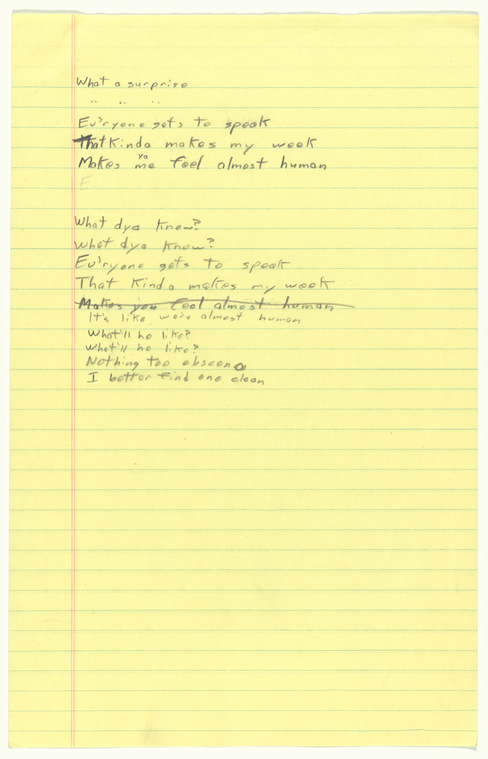 What a surprise
" " "
Ev'ryone gets to speak
That Kinda makes my week
Makes ya me feel almost human
E
What dya know?
What dya know?
Ev'ryone gets to speak
That Kinda makes my week
Makes you feel almost human
It's like we're almost human
What'll he like?
What'll he like?
Nothing too obscene
I better find one clean